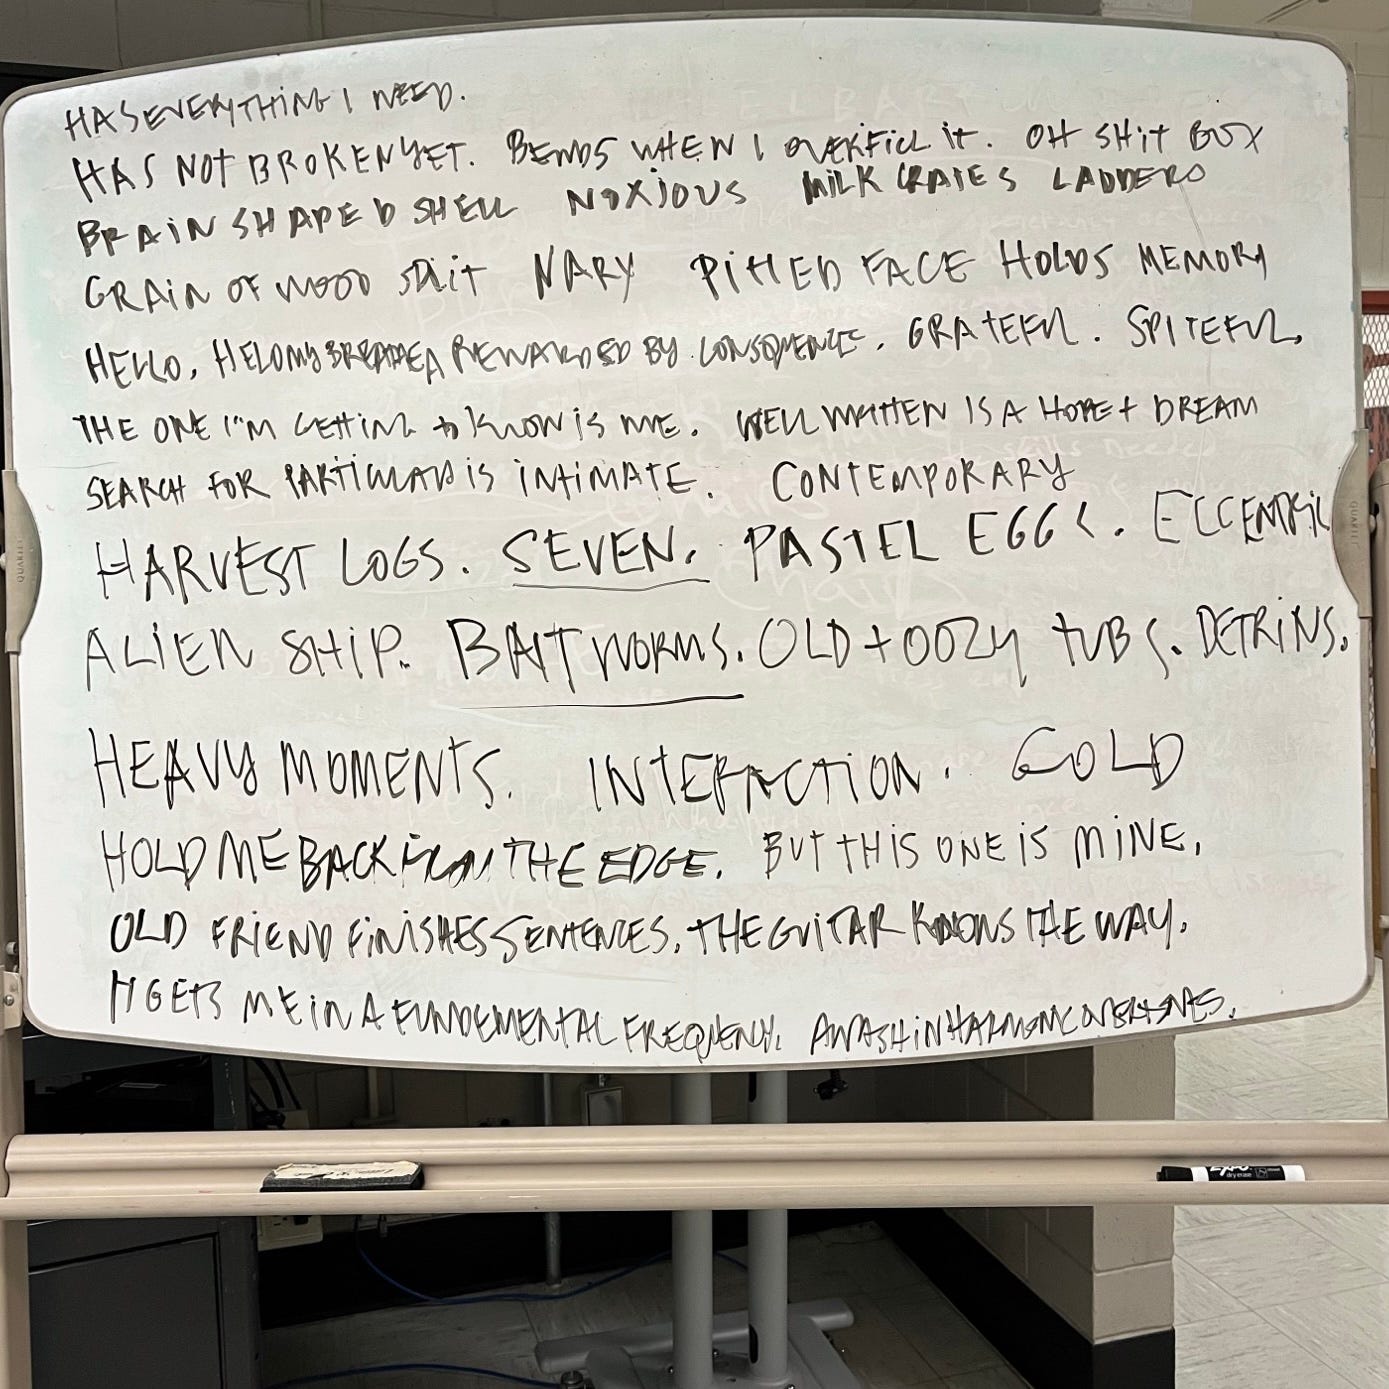 HAS EVERYTHING I NEED.
HAS NOT BROKEN YET. BENDS WHEN I OVERFILL IT. OH SHIT BOX
BRAIN SHAPED SHELL NOXIOUS MILK CRATES LADDERS
GRAIN OF WOOD SPLIT NARY PITTED FACE HOLDS MEMORY
HELLO, REWARDED BY CONSEQUENCE. GRATEFUL. SPITEFUL.
THE ONE I'M GETTING to KNOW IS ME. WELL WRITTEN IS A HOPE + DREAM
SEARCH FOR PARTICULAR IS INTIMATE. CONTEMPORARY
HARVEST LOGS. SEVEN. PASTEL EGGS. ECCENTRIC
ALIEN SHIP. BAIT WORMS. OLD + OOZY TUBS. DETRITUS.
HEAVY MOMENTS. INTERACTION. GOLD
HOLD ME BACK FROM THE EDGE. BUT THIS ONE IS MINE.
OLD FRIEND FINISHES SENTENCES. THE GUITAR KNOWS THE WAY.
IT GETS ME IN A FUNDEMENTAL FREQUENCY. AWASH IN HARMONIC
QUARTET
QUARTET
EXPO
dry erase